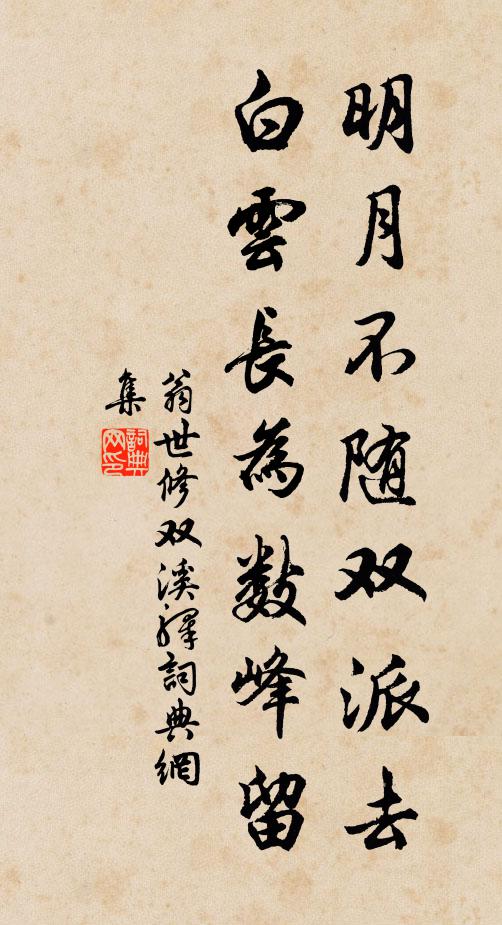 明月不随双派去
白雲長為数峰留
翁世修双溪驛詞典網
集
詞典
网印